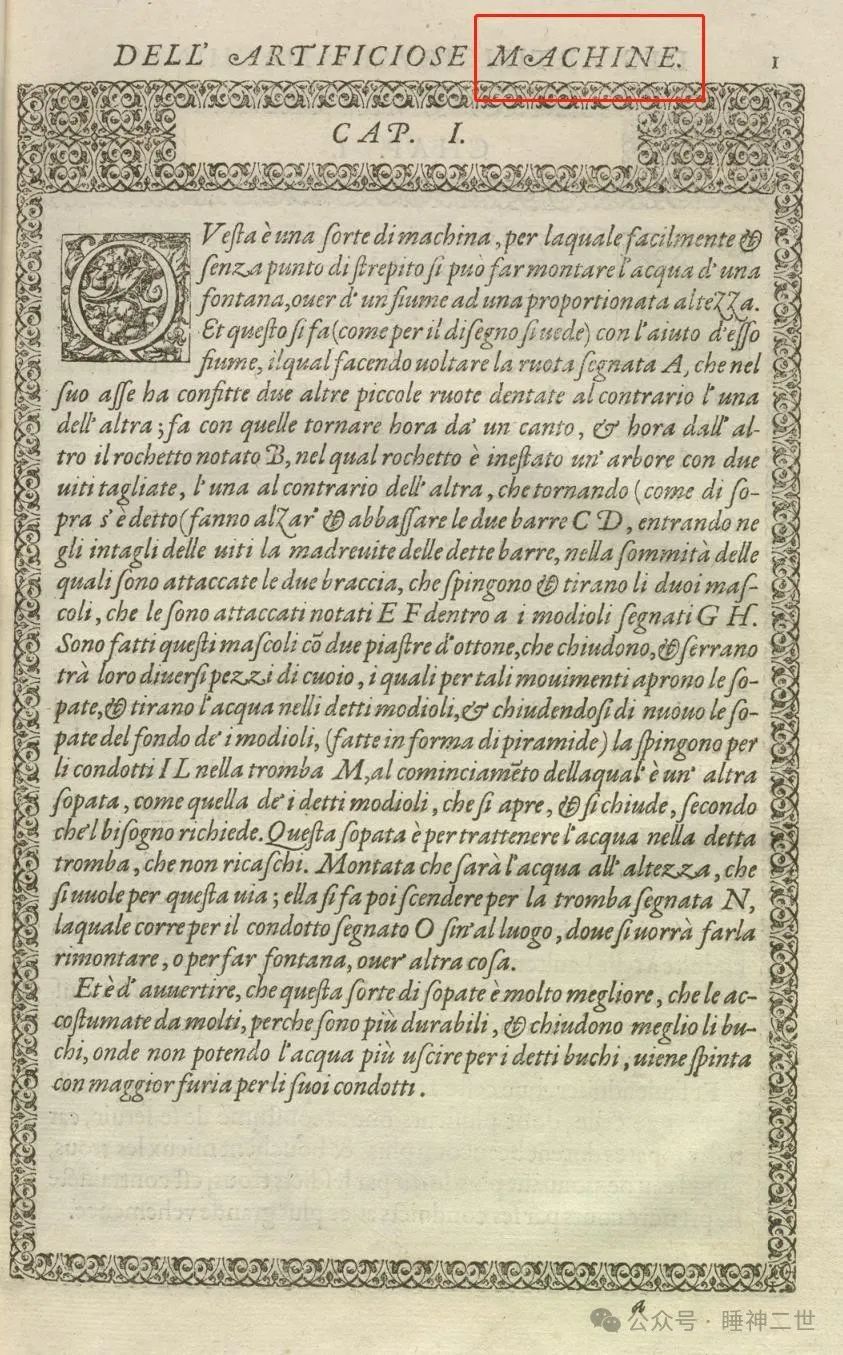 DELL' ARTIFICIOSE MACHINE. 1
CAP. I.
QVesta è una sorte di machina, per laquale facilmente &
senza punto di strepito si può far montare l'acqua d'una
fontana, ouer d'un fiume ad una proportionata altezza.
Et questo si fa (come per il disegno si uede) con l'aiuto d'esso
fiume, ilqual facendo uoltare la ruota segnata A, che nel
suo asse ha confitte due altre piccole ruote dentate al contrario l'una
dell'altra; fa con quelle tornare hora da' un canto, & hora dall' al-
tro il rochetto notato B, nel qual rochetto è inestato un' arbore con due
uiti tagliate, l'una al contrario dell'altra, che tornando (come di so-
pra s'è detto( fanno alzar' & abbassare le due barre C D, entrando ne
gli intagli delle uiti la madreuite delle dette barre, nella sommità delle
quali sono attaccate le due braccia, che spingono & tirano li duoi mas-
coli, che le sono attaccati notati E F dentro a i modioli segnati G H.
Sono fatti questi mascoli cõ due piastre d'ottone, che chiudono, & serrano
trà loro diuersi pezzi di cuoio, i quali per tali mouimenti aprono le so-
pate, & tirano l'acqua nelli detti modioli, & chiudendosi di nuouo le so-
pate del fondo de' i modioli, (fatte in forma di piramide) la spingono per
li condotti I L nella tromba M, al cominciamẽto dellaqual' è un' altra
sopata, come quella de' i detti modioli, che si apre, & si chiude, secondo
che'l bisogno richiede. Questa sopata è per trattenere l'acqua nella detta
tromba, che non ricaschi. Montata che sarà l'acqua all' altezza, che
si uuole per questa uia; ella si fa poi scendere per la tromba segnata N,
laquale corre per il condotto segnato O sin' al luogo, doue si uorrà farla
rimontare, o per far fontana, ouer' altra cosa.
Et è d'auuertire, che questa sorte di sopate è molto megliore, che le ac-
costumate da molti, perche sono più durabili, & chiudono meglio li bu-
chi, onde non potendo l'acqua più uscire per i detti buchi, uiene spinta
con maggior furia per li suoi condotti.
公众号 · 睡神二世